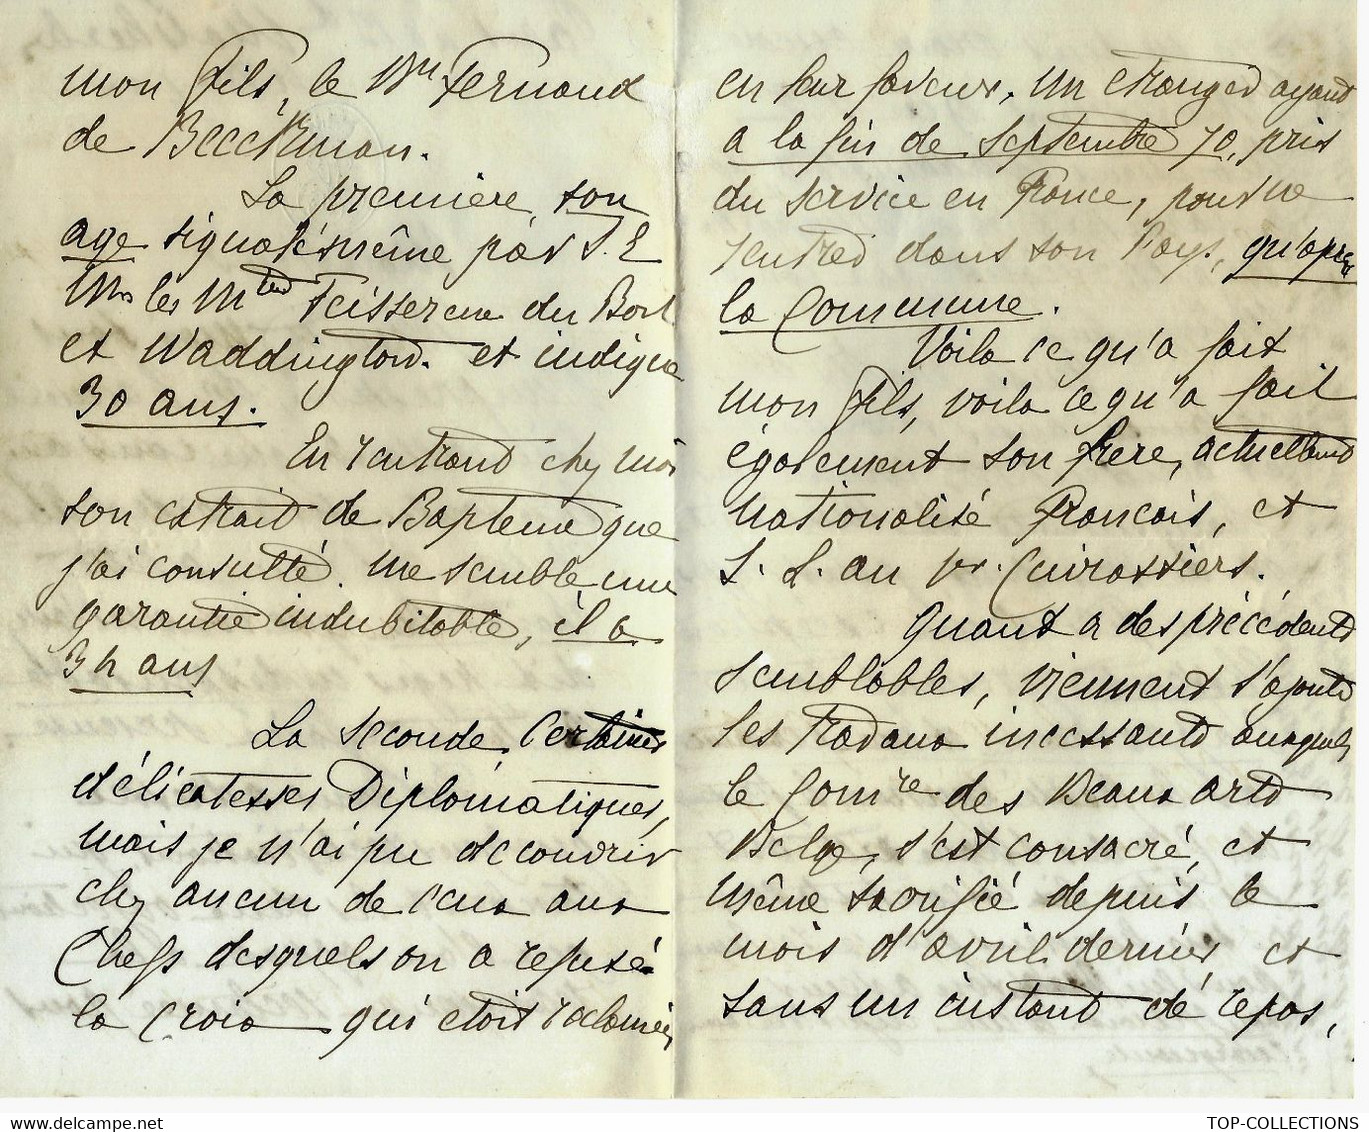 mon fils, le Bon Fernand
de Beeckman.
La première, son
age signalé même par S. E
Mrs les Mtres Teisserenc du Bort
et Waddington. et indique
30 ans.
En rentrant chez moi
son extrait de Bapteme que
j'ai consulté. me semble une
garantie indubitable, il a
34 ans
La seconde, certaines
délicatesses Diplomatiques,
mais je n'ai pu decouvrir
chez aucun de ceux aux
Chefs desquels on a refusé
la croix qui était réclamée
en leur faveur, un étranger ayant
a la fin de Septembre 70, pris
du service en France, pour ne
rentrer dans son Pays, qu'après
la Commune.
Voila ce qu'a fait
mon fils, voila ce qu'a fait
également son frere, actuellement
nationalisé Francais, et
S. L. au 1er. Cuirassiers.
Quant a des précédents
semblables, viennent s'ajouter
les travaux incessants auxquels
le Comre des Beaux arts
Belge, s'est consacré, et
même sacrifié depuis le
mois d'avril dernier et
sans un instant de repos,
TOP-COLLECTIONS